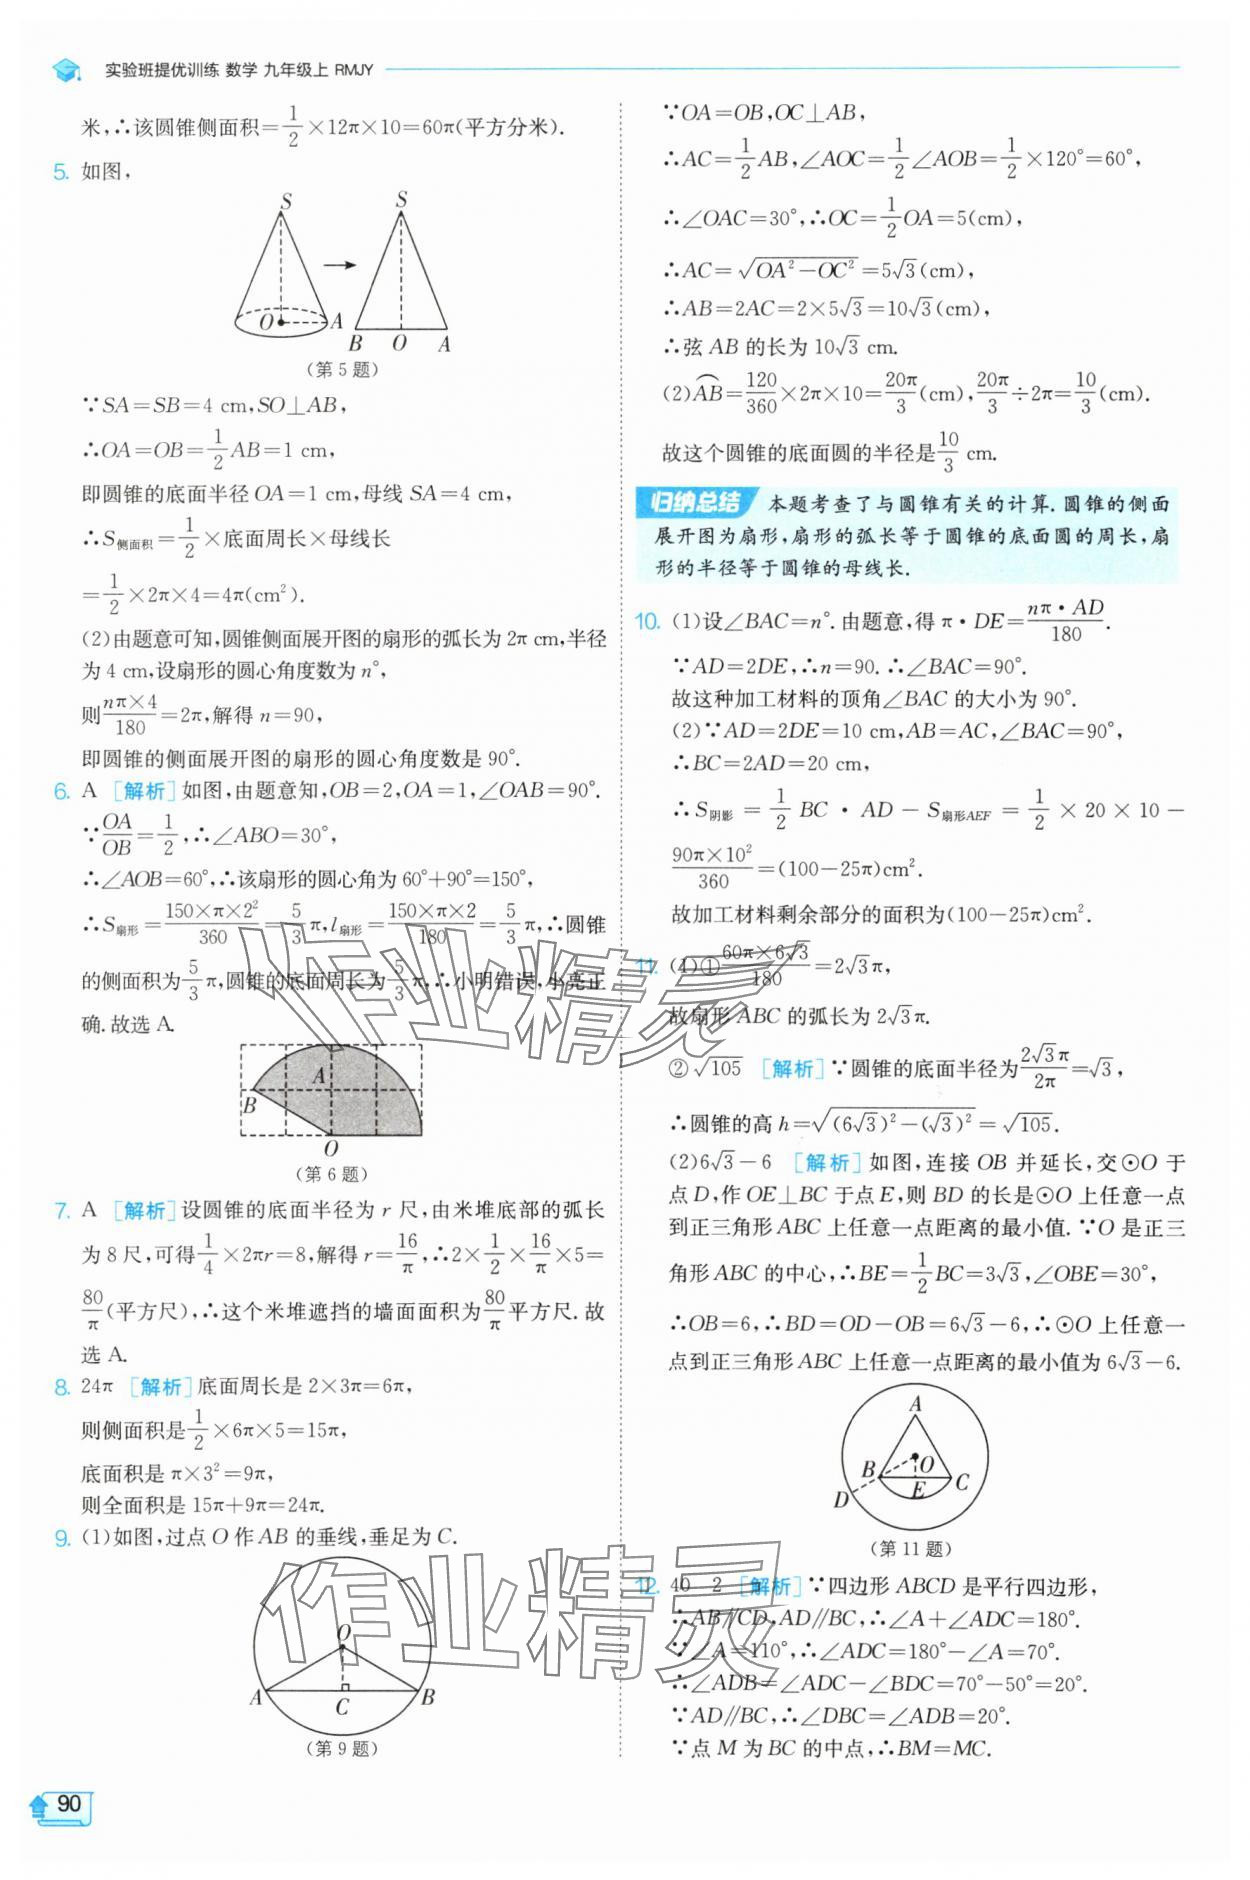 实验班提优训练 数学 九年级上 RMJY
米,∴该圆锥侧面积=1/2×12π×10=60π(平方分米).
5. 如图,
S S
O A B O A
(第5题)
∵SA=SB=4 cm,SO⊥AB,
∴OA=OB=1/2AB=1 cm,
即圆锥的底面半径OA=1 cm,母线SA=4 cm,
∴S侧面积=1/2×底面周长×母线长
=1/2×2π×4=4π(cm²).
(2)由题意可知,圆锥侧面展开图的扇形的弧长为2π cm,半径
为4 cm,设扇形的圆心角度数为n°,
则nπ×4/180=2π,解得n=90,
即圆锥的侧面展开图的扇形的圆心角度数是90°.
6. A [解析]如图,由题意知,OB=2,OA=1,∠OAB=90°.
∵OA/OB=1/2,∴∠ABO=30°,
∴∠AOB=60°,∴该扇形的圆心角为60°+90°=150°,
∴S扇形=150×π×2²/360=5/3π,l扇形=150×π×2/180=5/3π,∴圆锥
的侧面积为5/3π,圆锥的底面周长为5/3π,∴小明错误,小亮正
确.故选A.
A
B
O
(第6题)
7. A [解析]设圆锥的底面半径为r尺,由米堆底部的弧长
为8尺,可得1/4×2πr=8,解得r=16/π,∴2×1/2×16/π×5=
80/π(平方尺),∴这个米堆遮挡的墙面面积为80/π平方尺.故
选A.
8. 24π [解析]底面周长是2×3π=6π,
则侧面积是1/2×6π×5=15π,
底面积是π×3²=9π,
则全面积是15π+9π=24π.
9. (1)如图,过点O作AB的垂线,垂足为C.
O
A C B
(第9题)
90
∵OA=OB,OC⊥AB,
∴AC=1/2AB,∠AOC=1/2∠AOB=1/2×120°=60°,
∴∠OAC=30°,∴OC=1/2OA=5(cm),
∴AC=√(OA²-OC²)=5√3(cm),
∴AB=2AC=2×5√3=10√3(cm),
∴弦AB的长为10√3 cm.
(2)⌒AB=120/360×2π×10=20π/3(cm),20π/3÷2π=10/3(cm).
故这个圆锥的底面圆的半径是10/3 cm.
归纳总结 本题考查了与圆锥有关的计算.圆锥的侧面
展开图为扇形,扇形的弧长等于圆锥的底面圆的周长,扇
形的半径等于圆锥的母线长.
10. (1)设∠BAC=n°.由题意,得π·DE=nπ·AD/180.
∵AD=2DE,∴n=90.∴∠BAC=90°.
故这种加工材料的顶角∠BAC的大小为90°.
(2)∵AD=2DE=10 cm,AB=AC,∠BAC=90°,
∴BC=2AD=20 cm,
∴S阴影=1/2BC·AD-S扇形AEF=1/2×20×10-
90π×10²/360=(100-25π)cm².
故加工材料剩余部分的面积为(100-25π)cm².
11. (1)①60π×6√3/180=2√3π,
故扇形ABC的弧长为2√3π.
②√105 [解析]∵圆锥的底面半径为2√3π/2π=√3,
∴圆锥的高h=√((6√3)²-(√3)²)=√105.
(2)6√3-6 [解析]如图,连接OB并延长,交⊙O于
点D,作OE⊥BC于点E,则BD的长是⊙O上任意一点
到正三角形ABC上任意一点距离的最小值.∵O是正三
角形ABC的中心,∴BE=1/2BC=3√3,∠OBE=30°,
∴OB=6,∴BD=OD-OB=6√3-6,∴⊙O上任意一
点到正三角形ABC上任意一点距离的最小值为6√3-6.
A
O
B E C
D
(第11题)
12. 40 2 [解析]∵四边形ABCD是平行四边形,
∴AB∥CD,AD∥BC,∴∠A+∠ADC=180°.
∵∠A=110°,∴∠ADC=180°-∠A=70°.
∴∠ADB=∠ADC-∠BDC=70°-50°=20°.
∵AD∥BC,∴∠DBC=∠ADB=20°.
∵点M为BC的中点,∴BM=MC.
作业精灵
作业精灵